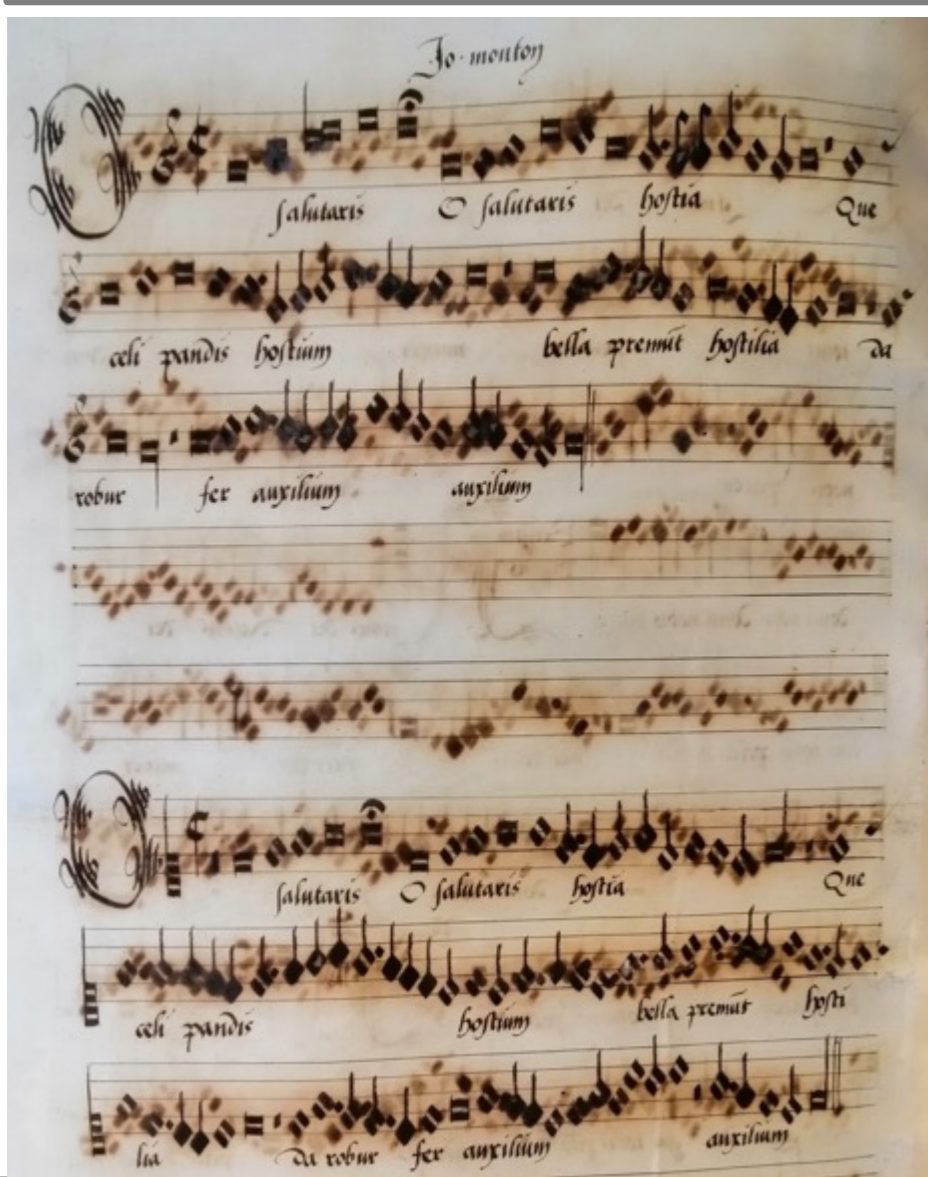 Jo · mouton
salutaris O salutaris hostia Que
celi pandis hostium bella premūt hostilia da
robur fer auxilium auxilium
salutaris O salutaris hostia Que
celi pandis hostium bella premūt hosti
lia da robur fer auxilium auxilium